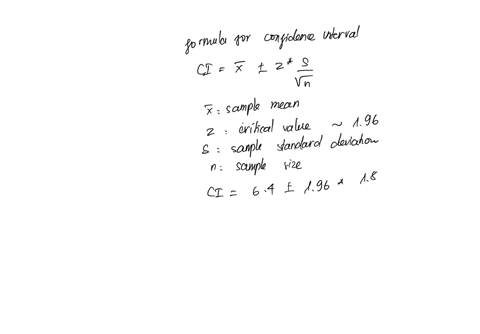 formula for confidence interval
CI = x̄ ± z * s/√n
x̄ : sample mean
z : critical value ~ 1.96
s : sample standard deviation
n : sample size
CI = 6.4 ± 1.96 * 1.8